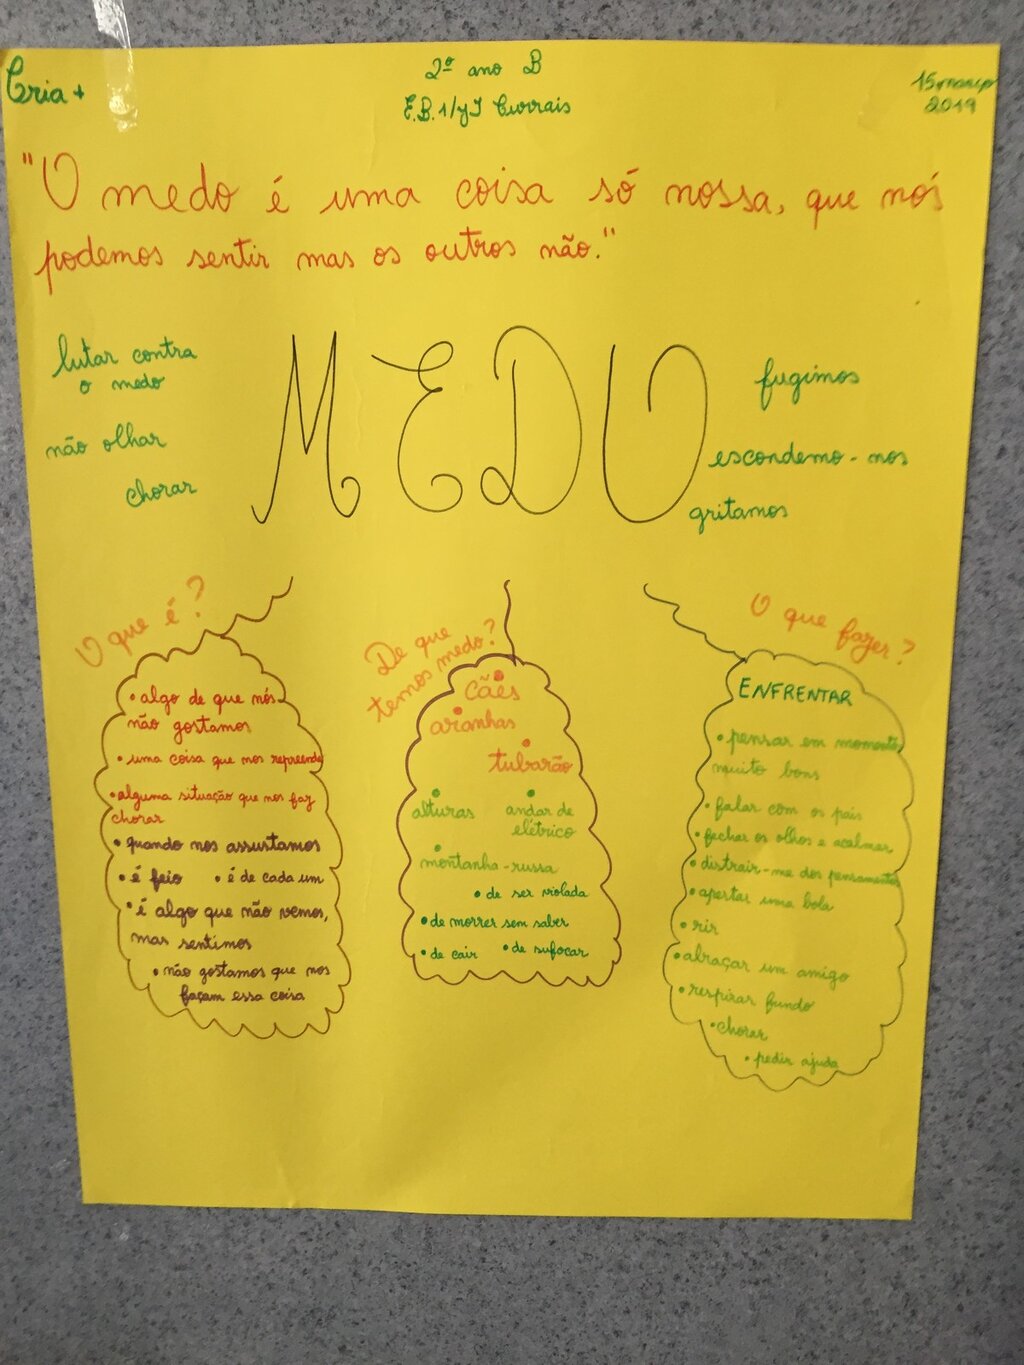 Cria +
2º ano B
E.B.1/PI Currais
15 março
2019
"O medo é uma coisa só nossa, que nós
podemos sentir mas os outros não."
MEDO
lutar contra
o medo
não olhar
chorar
fugimos
escondemo-nos
gritamos
O que é?
• algo de que nós
não gostamos
• uma coisa que nos repreende
• alguma situação que nos faz
chorar
• quando nos assustamos
• é feio • é de cada um
• é algo que não vemos,
mas sentimos
• não gostamos que nos
façam essa coisa
De que
temos medo?
• cães
• aranhas
• tubarão
• alturas
• andar de
elétrico
• montanha-russa
• de ser violada
• de morrer sem saber
• de cair • de sufocar
O que fazer?
ENFRENTAR
• pensar em momentos
muito bons
• falar com os pais
• fechar os olhos e acalmar
• distrair-me dos pensamentos
• apertar uma bola
• rir
• abraçar um amigo
• respirar fundo
• chorar
• pedir ajuda